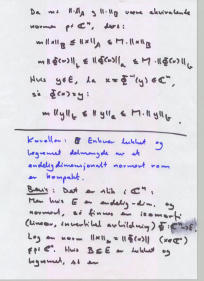 Da må ‖·‖_A og ‖·‖_B være ekvivalente
normer på ℂⁿ, dvs:
m‖x‖_B ≤ ‖x‖_A ≤ M·‖x‖_B
m‖Φ(x)‖_b ≤ ‖Φ(x)‖_a ≤ M·‖Φ(x)‖_b
Hvis y∈E, la x = Φ⁻¹(y) ∈ ℂⁿ,
så Φ(x)=y:
m‖y‖_b ≤ ‖y‖_a ≤ M·‖y‖_b.
Korollar: Enhver lukket og
begrenset delmengde av et
endeligdimensjonalt normert rom
er kompakt.
Bevis: Det er slik i ℂⁿ:
Men hvis E er endelig-dim. og
normert, så finnes en isomorfi
(lineær, invertibel avbildning) Φ: ℂⁿ→E
Lag en norm ‖x‖_a = ‖Φ(x)‖ (x∈ℂⁿ)
på ℂⁿ. Hvis B⊆E er lukket og
begrenset, så er